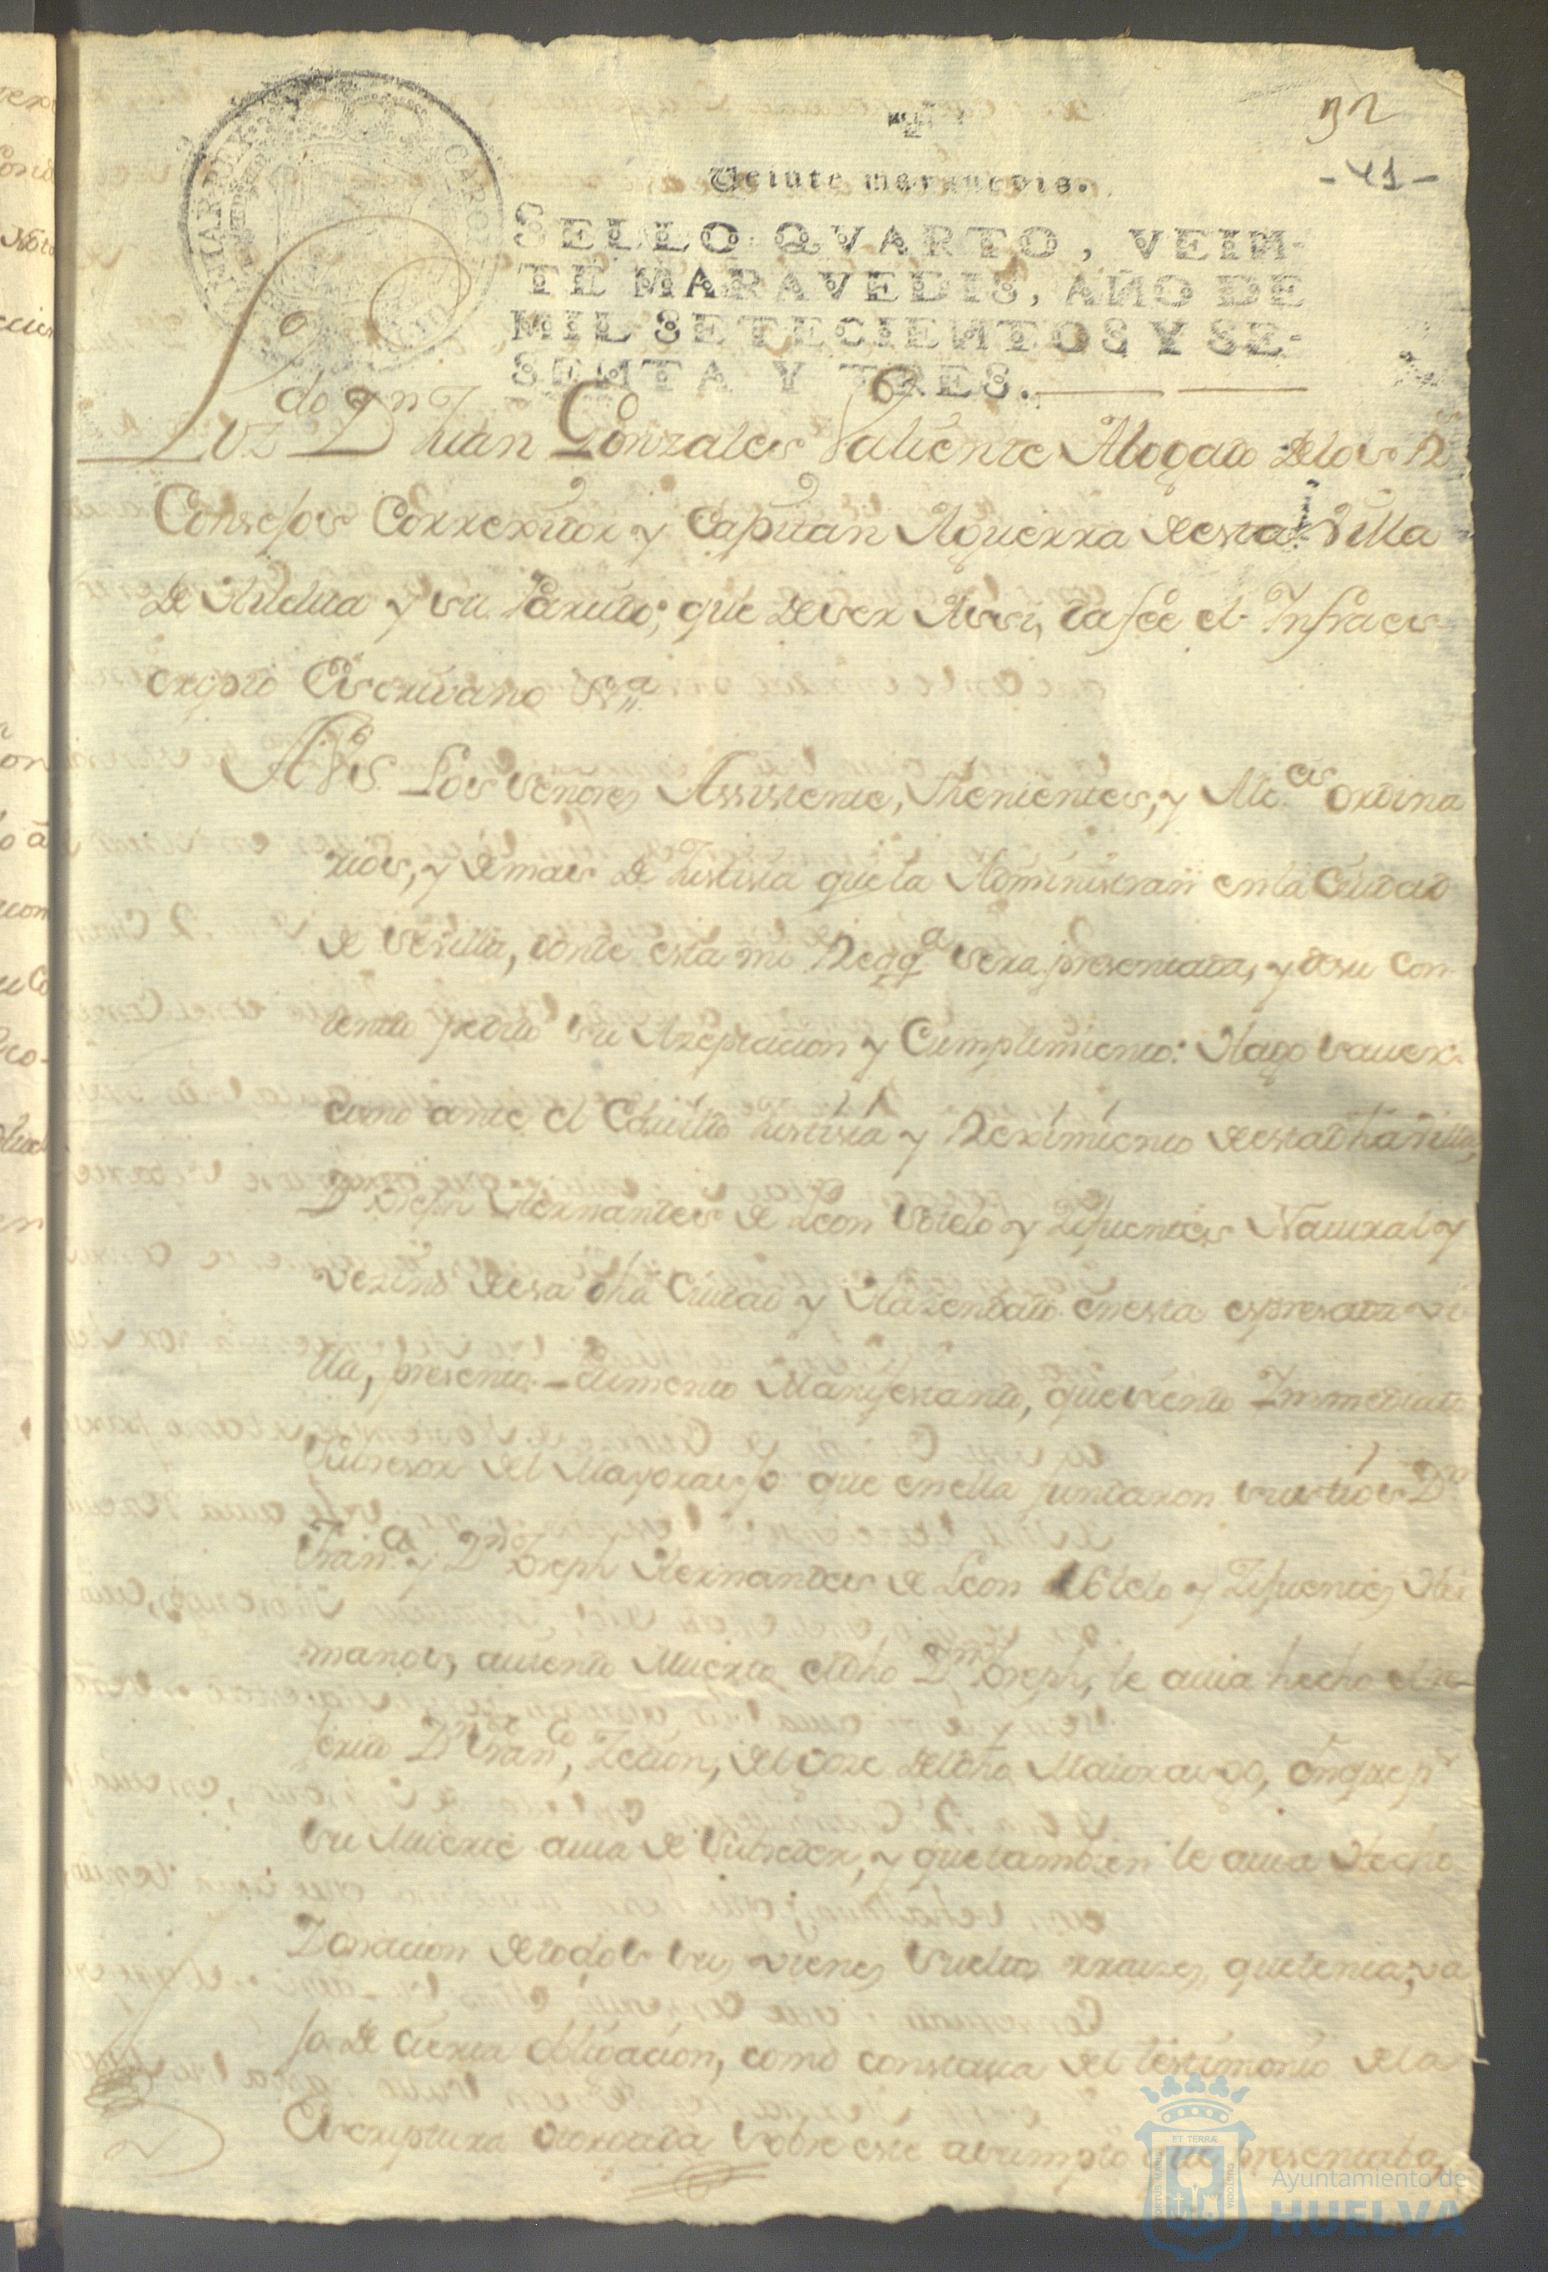 32
-41-
Veinte marauedis.
SELLO QVARTO, VEIN-
TE MARAVEDIS, AÑO DE
MIL SETECIENTOS Y SE-
SENTA Y TRES.
Lizdo Dn Juan Gonzales Valiente Abogado delos Rs
Consejos Correxidor y Capitan Aguerra desta Villa
de Huelva y su Partido; que de ser Assi, da fee el Infraes
cripto Escrivano
A VSs. Los Señores Assistente, Thenientes, y Alces ordina
rios, y demas de Justisia que la Administran en la Ciudad
de Sevilla, donde esta mi Reqqa sera presentada, y de su con
tenido pedido su Azeptacion y Cumplimiento: Hago saver
como ante el Cavildo Justisia y Reximiento desta dha villa,
Dn Joseph Hernandes de Leon Sotelo y Zifuentes Natural y
Vezino desa dha Ciudad y Hazendado en esta espresada vi
lla, presento - dimento Manifestando, que siendo Immediato
Suzesor del Mayorasgo que en ella fundaron sus tios Dn
Franco y Dn Joseph Hernandes de Leon Sotelo y Zifuentes Her
manos, auiendo Muerto el dho Dn Joseph, le auia hecho el re
ferido Dn Franco, Zecion, del Goze del dho Maiorasgo, en que pr
su Muerte auia de Suzeder, y que tambien le auia Hecho
Donacion de todos sus vienes sueltos rraizes, que tenia, va
jo de cierta obligacion, como constaua del testimonio de la
Escriptura otorgada sobre este assumpto que presentaba,
ET TERRÆ
PORTUS MARIS
CUSTODIA
Ayuntamiento de
HUELVA